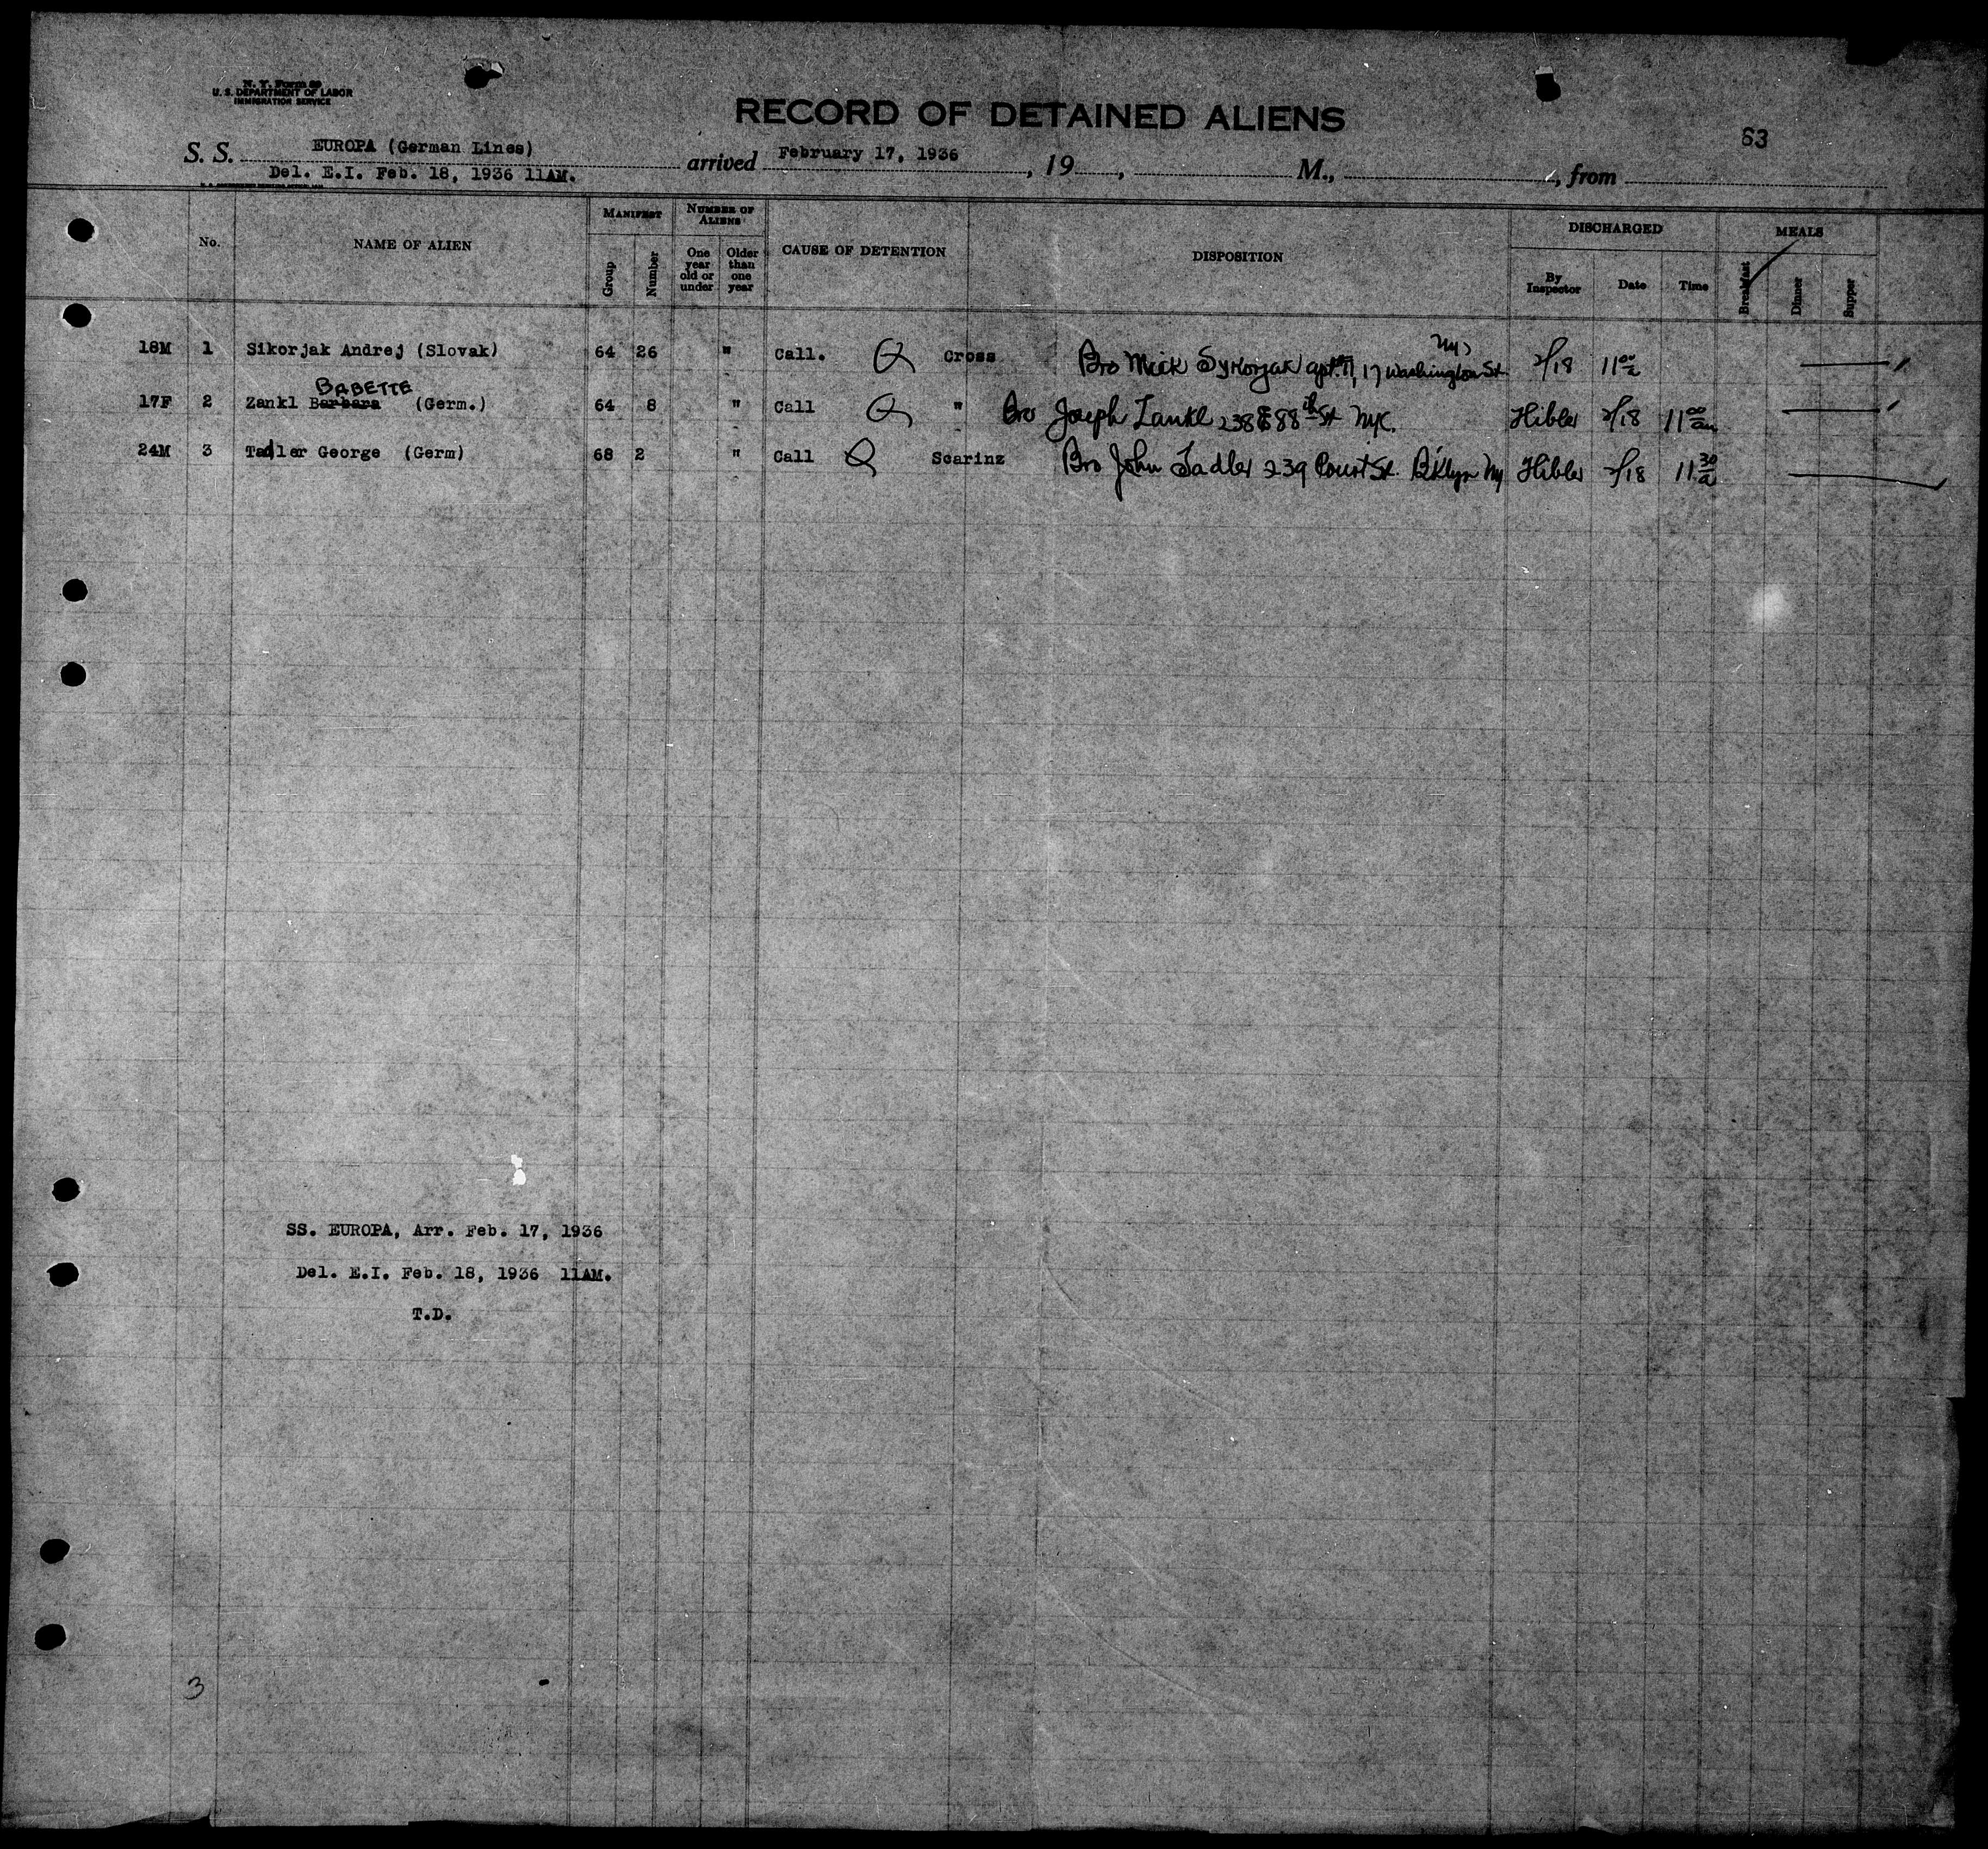 N. Y. Form 99
U. S. DEPARTMENT OF LABOR
IMMIGRATION SERVICE
RECORD OF DETAINED ALIENS
63
S. S. EUROPA (German Lines) arrived February 17, 1936, 19 , M., , from
Del. E.I. Feb. 18, 1936 11AM.
No. NAME OF ALIEN MANIFEST Group Number NUMBER OF ALIENS One year old or under Older than one year CAUSE OF DETENTION DISPOSITION DISCHARGED By Inspector Date Time MEALS Breakfast Dinner Supper
NY
18M 1 Sikorjak Andrej (Slovak) 64 26 " Call. Cross Bro Mick Sykorjak apt. 17 Washington St 2/18 11 00 a
BABETTE
17F 2 Zankl Barbara (Germ.) 64 8 " Call " Bro Joseph Zankl 238 E 88th St NYC. Hibler 2/18 11 00 am
24M 3 Tadler George (Germ) 68 2 " Call Scarinz Bro John Tadler 239 Court St. B'klyn NY Hibler 2/18 11 30 a
SS. EUROPA, Arr. Feb. 17, 1936
Del. E.I. Feb. 18, 1936 11AM.
T.D.
3